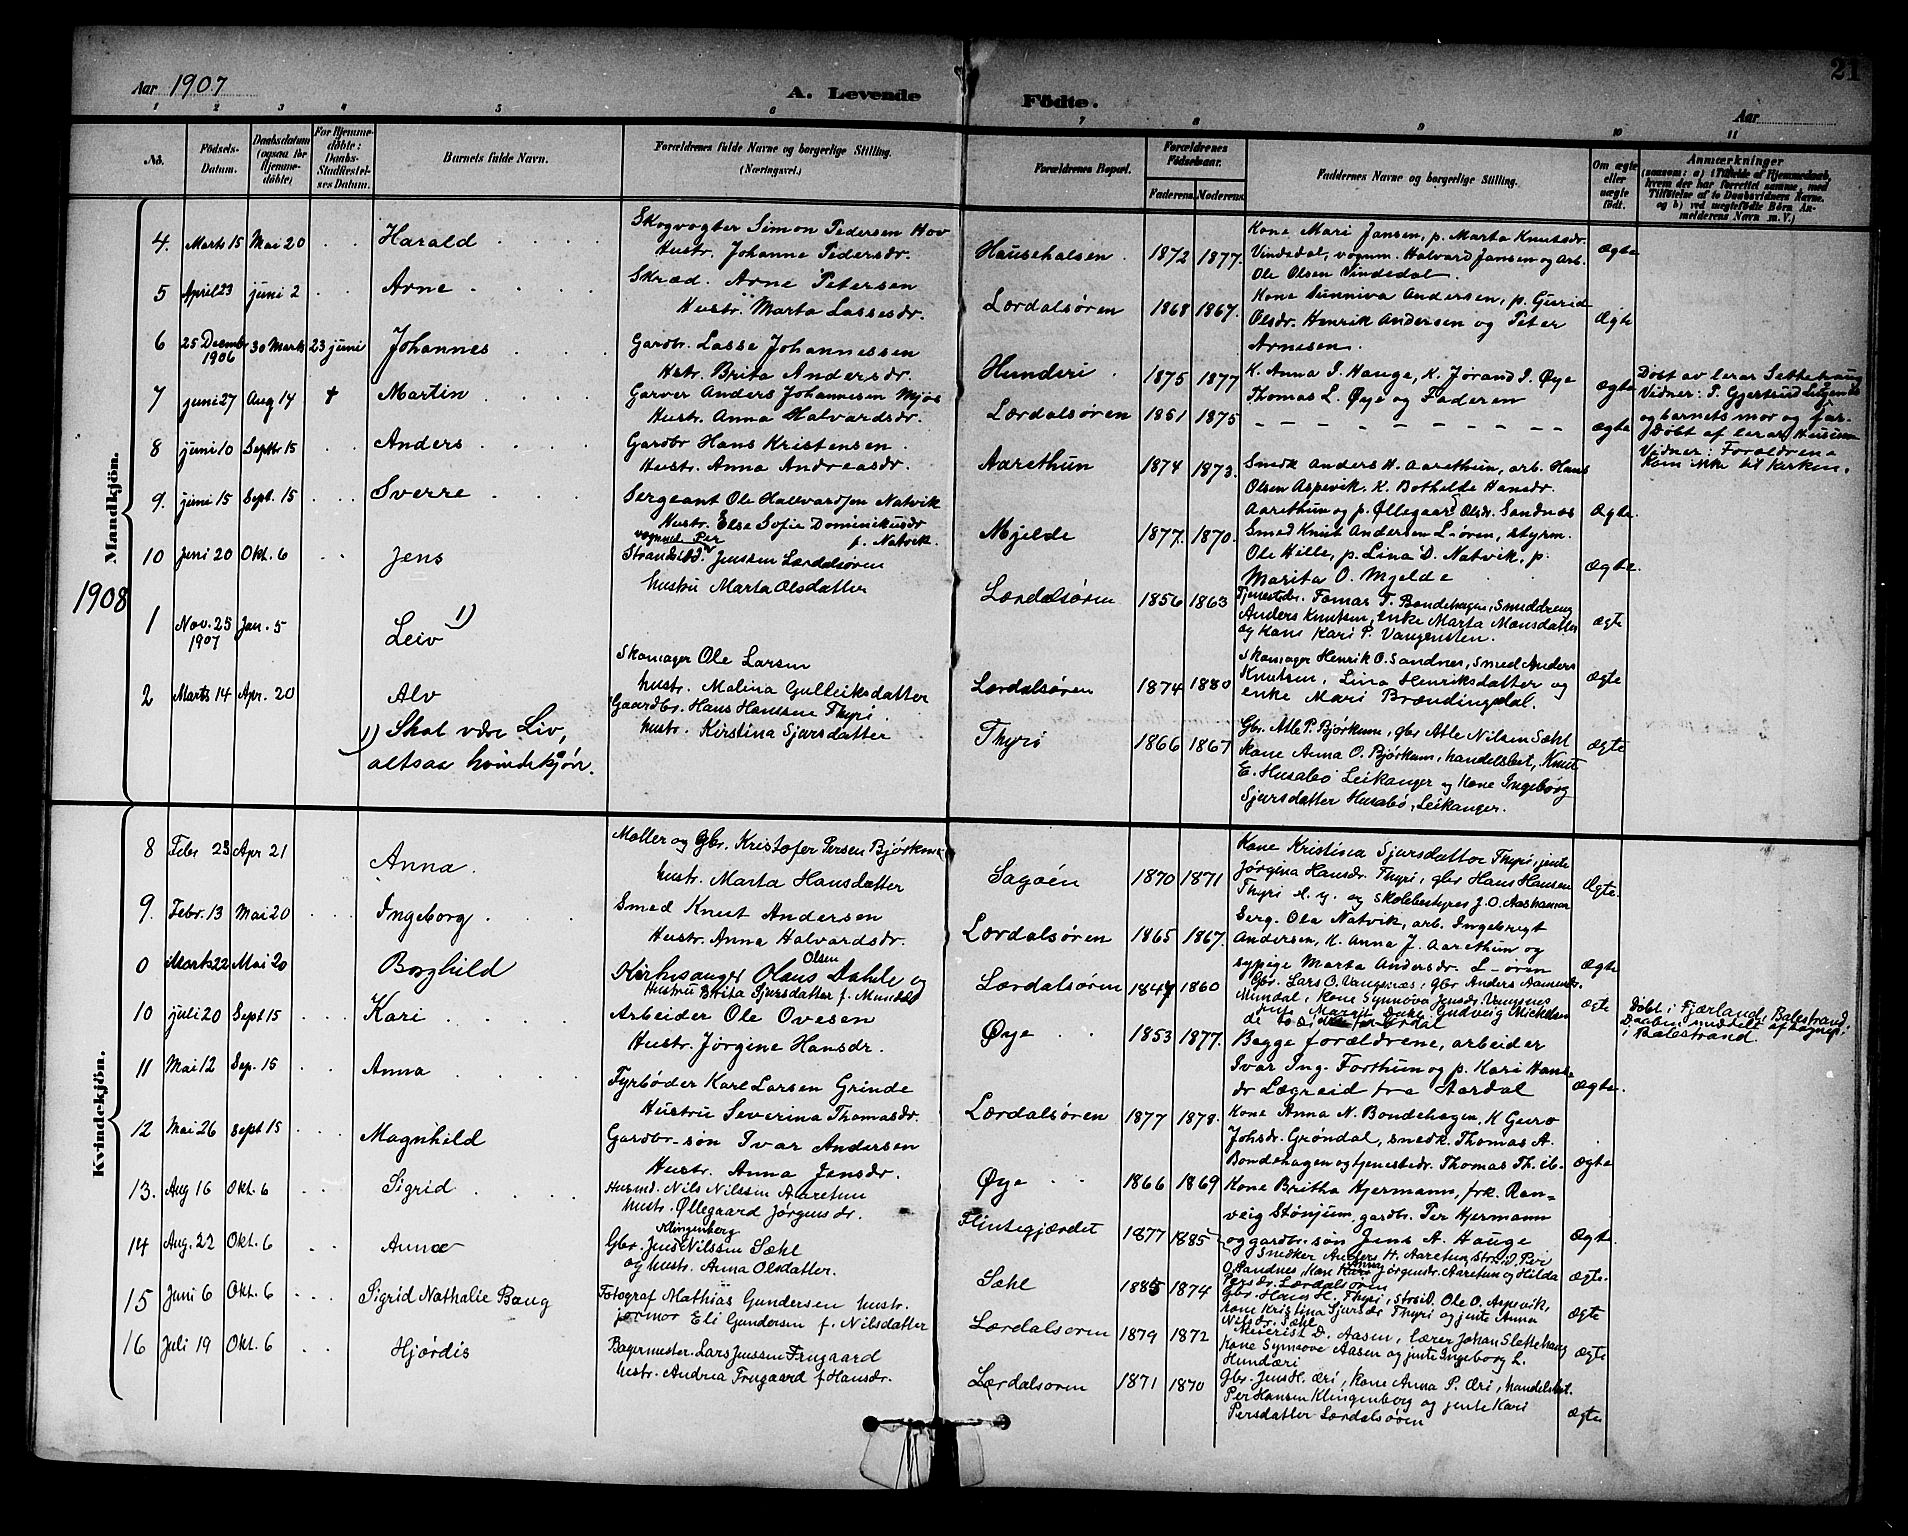 21
Aar 1907
A. Levende Födte.
Aar
1 2 3 4 5 6 7 8 9 10 11
No.
Födsels-Datum.
Daabsdatum (ogsaa for Hjemme-döbte)
For Hjemme-döbte: Daabs-Stadfæstel-ses Datum.
Barnets fulde Navn.
Forældrenes fulde Navne og borgerlige Stilling. (Næringsvei.)
Forældrenes Bopæl.
Forældrenes Födselsaar.
Faderens. Moderens.
Faddernes Navne og borgerlige Stilling.
Om ægte eller uægte födt.
Anmærkninger
(saasom: a) i Tilfælde af Hjemmedaab, hvem der har forrettet samme, med Tilföielse af to Daabsvidners Navne, og b) ved uægtefödte Börn An-melderens Navn m. V.)
Mandkjön.
4. Marts 15 Mai 20 Harald
Skogvogter Simon Pedersen Hov
Hustr. Johanne Pedersdr.
Hausehalsen 1872 1877
Kone Mari Jansen, p. Marta Knutsdr.
Vindedal, vognm. Halvard Jansen og Arb.
Ole Olsen Vindedal.
Ægte
5 April 23 juni 2 Arne
Skræd. Arne Petersen
Hustr. Marta Lassesdr.
Lærdalsören 1868 1867.
Kone Sunniva Andersen, p. Gurid
Olsdr. Henrik Andersen og Peter
Arnesen.
Ægte
6 25 Decembr 1906 30 Marts 23 juni Johannes
Gardbr. Lasse Johannessen
Hstr. Brita Andersdr.
Hunderi 1875 1877
K. Anna I. Hauge, K. Jørand I. Øye
Thomas L. Øye og Faderen
Ægte
Döbt av lærar Slettehaug
Vidner: P. Gjertrud
og barnets mor og far.
7 juni 27 Aug 14 + Martin
Garver Anders Johannesen Mjøs
Hustr. Anna Halvardsdr.
Lærdalsören 1861 1875
Ægte
Döbt af lerar Husum
Vidner: Forældrene
Kom ikke til kirken.
8 juni 10 Septbr 15 Anders
Gardbr Hans Kristensen
Hustr. Anna Andreasdr.
Aarethun 1874 1873.
Smedk Anders H. Aarethun, arb. Hans
Olsen Aspevik. K. Bothilde Hansdr.
Aarethun og p. Øllegaard Olsdr. Sandnes
Ægte.
9. juni 15 Sept. 15 Sverre
Sergeant Ole Hallvardsen Natvik
Hustr. Else Sofie Dominikusdr
f. Natvik.
Mjelde 1877. 1870.
Smed Knut Andersen L-ören, styrm.
Ole Hille, p. Lina D. Natvik, p.
Marita O. Mjelde
Ægte.
10 Juni 20 Okt. 6 Jens
vognmd Per
Strandsid. Jenssen Lærdalsören
hustru Marta Olsdatter
Lærdalsören 1856 1863
Tjenestedr. Tomas T. Bondehagen, Smeddreng
Anders Knutsen, enke Marta Monsdatter
og kone Kari P. Vangensten.
ægte
1908
1 Nov. 25 1907 Jan. 5 Leiv 1)
Skomager Ole Larsen
hustr. Malina Gulleiksdatter
Lærdalsören 1874 1880
Skomager Henrik O. Sandnes, Smed Anders
Knutsen, Lina Henriksdatter og
enke Mari Brændingdal.
ægte
2 Marts 14 Apr. 20 Alv
Gaardbr. Hans Hanssen Thyri
hustr. Kirstina Sjursdatter
Thyri 1866 1867
Gbr. Atle P. Bjørkum, gbr Atle Nilsen Sæhl
Kone Anna O. Bjørkum, handelsbet. Knut
E. Husabø Leikanger og Kone Ingeborg
Sjursdatter Husabø, Leikanger.
ægte
1) Skal være Liv,
altsaa kvindekjön.
Kvindekjön.
8 Febr 23 Apr 21 Anna.
Møller og Gbr. Kristofer Persen Bjørkum
hustr. Marta Hansdatter
Sagöen 1870 1871
Kone Kristina Sjursdatter Thyri, jente
Jørgina Hansdr. Thyri, gbr Hans Hansen
Thyri d. y. og skolebestyrer J. O. Aashamar
Ægte.
9. Febr. 13 Mai 20 Ingeborg
Smed Knut Andersen
Hustr. Anna Halvardsdr.
Lærdalsören 1865 1867.
Serg. Ola Natvik, arb. Ingebrigt
Andersen, K. Anna J. Aarethun og
sypige Marta Andersdr. L-ören
Ægte
0 Marts 22 Mai 20 Borghild
Kirkesanger Olaus Olsen Dahle og
Hustru Brita Sjursdatter f. Mundal
Lærdalsören 1847 1860
Gbr. Lars O. Vangsnæs, gbr Anders
Mundal, Kone Synnøva Jensdr. Vangsnes
ægte
Döbt i Fjærland, Balestrand.
Daaben meddelt af sognepr.
i Balestrand.
10 juli 20 Sept 15 Kari
Arbeider Ole Ovesen
Hustr. Jørgine Hansdr.
Øye 1853 1877.
Begge forældrene, arbeider
Ivar Ing. Forthun og p. Kari Hans-
dr Lægreid fra Aardal
Ægte.
11 Mai 12 Sep. 15 Anna
Fyrbøder Karl Larsen Grinde
Hustru Severina Thomasdr.
Lærdalsören 1877 1878.
Kone Anna N. Bondehagen, K Guro
Johsdr. Grøndal, smedk. Thomas A.
Bondehagen og tjenestedr. Thomas Th. ib-
Ægte
12 Mai 26 Sept 15 Magnhild
Gardbr-søn Ivar Andersen
Hustr. Anna Jensdr.
Øye 1866 1869
Kone Britha Hjermann, frk. Ran-
veig Stønjum, gardbr. Per Hjermann
og gardbr. søn Jens A. Hauge
Ægte
13. Aug 16 Okt. 6 Sigrid
Husmd. Nils Nilssen Aaretun
hustr. Øllegaard Jørgensdr.
Flintegjærdet 1877 1885
Snedker Anders H. Aaretun, Strsid. Per
O. Sandnes, Kone Anna Jørgensdr. Aaretun og Hilda
Persdr. Lærdalsören
Ægte.
14 Aug. 22 Okt. 6 Anna
Gbr. Jens Nilssen Klingenberg Sæhl
og hustr. Anna Olsdatter.
Sæhl 1885 1874
Gbr. Hans H. Thyri, Strsid. Ole O. Aspevik,
kone Kristina Sjursdr Thyri og jente Anna
Nilsdr. Sæhl
Ægte
15 Juni 6 Okt. 6 Sigrid Nathalie Baug
Fotograf Mathias Gundersen hustr.
jormor Eli Gundersen f. Nilsdatter
Lærdalsören 1879 1872
Meierist D. Aasen, lærer Johan Slettehaug
Kone Synnöve Aasen og jente Ingeborg L.
Hundæri
Ægte
16 Juli 19 Okt. 6 Hjørdis
Bagermester Lars Jenssen Frugaard
hustr. Andrea Frugaard f. Hansdr.
Lærdalsören 1871 1870
Gbr. Jens H. Æri, kone Anna P. Æri, handelsbet.
Per Hansen Klingenberg og jente Kari
Persdatter Lærdalsören
Ægte